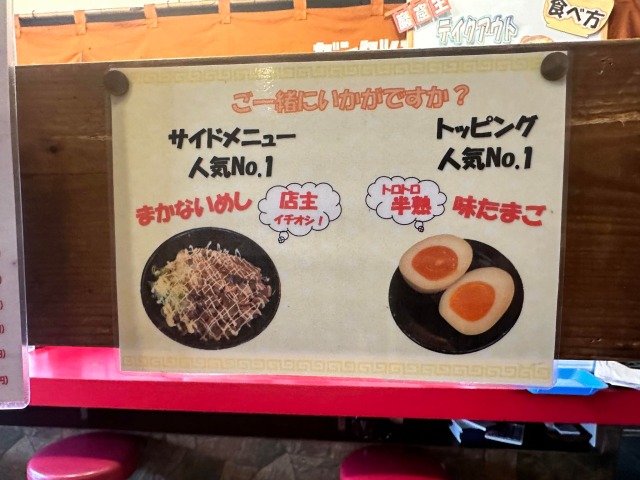 テイクアウト
食べ方
ご一緒にいかがですか？
サイドメニュー
人気No.1
トッピング
人気No.1
まかないめし
店主
イチオシ！
トロトロ
半熟
味たまご